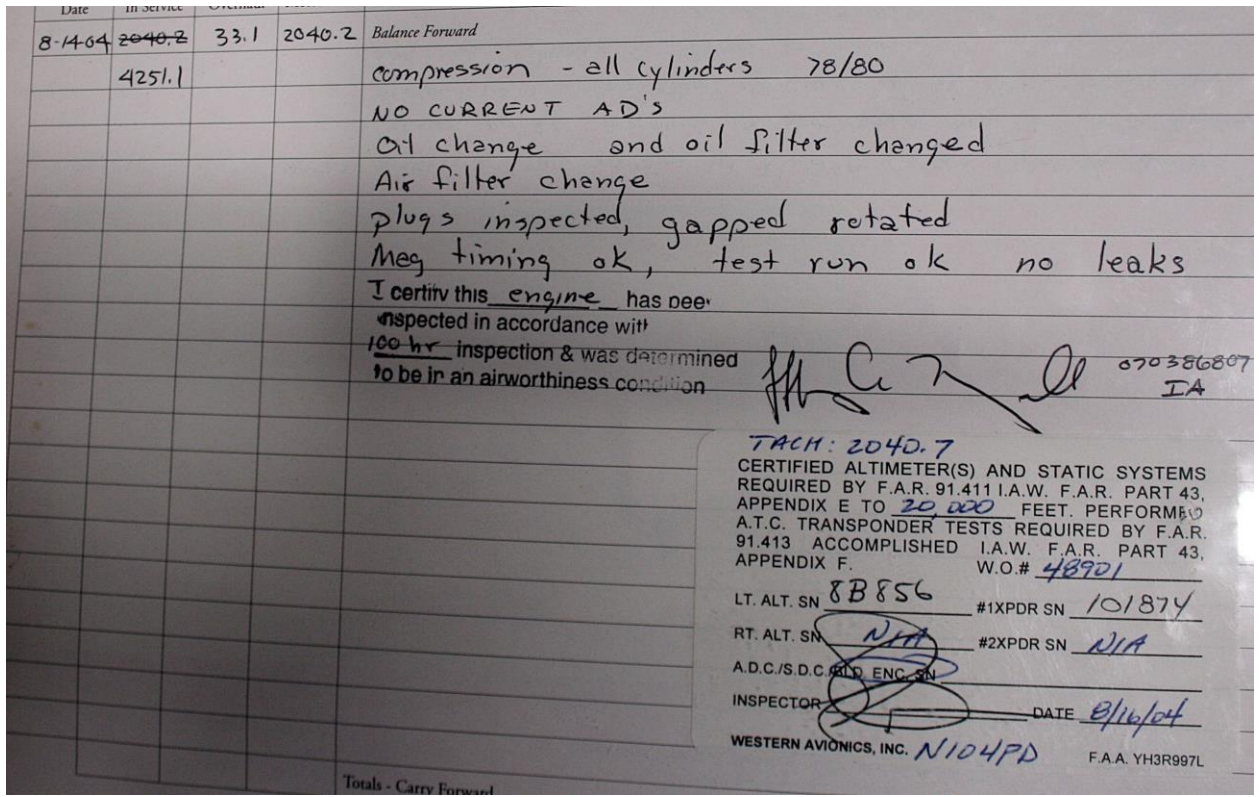 Date In Service Overhaul
8-14-04 2040.2 33.1 2040.2 Balance Forward
4251.1 compression - all cylinders 78/80
NO CURRENT AD'S
Oil change and oil filter changed
Air filter change
plugs inspected, gapped rotated
Mag timing ok, test run ok no leaks
I certify this engine has bee
inspected in accordance with
100 hr inspection & was determined
to be in an airworthiness condition
070386807
IA
TACH: 2040.7
CERTIFIED ALTIMETER(S) AND STATIC SYSTEMS
REQUIRED BY F.A.R. 91.411 I.A.W. F.A.R. PART 43,
APPENDIX E TO 20,000 FEET. PERFORMED
A.T.C. TRANSPONDER TESTS REQUIRED BY F.A.R.
91.413 ACCOMPLISHED I.A.W. F.A.R. PART 43,
APPENDIX F. W.O.# 48901
LT. ALT. SN 8B856 #1XPDR SN 101874
RT. ALT. SN N/A #2XPDR SN N/A
A.D.C./S.D.C./BLD. ENC. SN
INSPECTOR DATE 8/16/04
WESTERN AVIONICS, INC. N104PD F.A.A. YH3R997L
Totals - Carry Forward